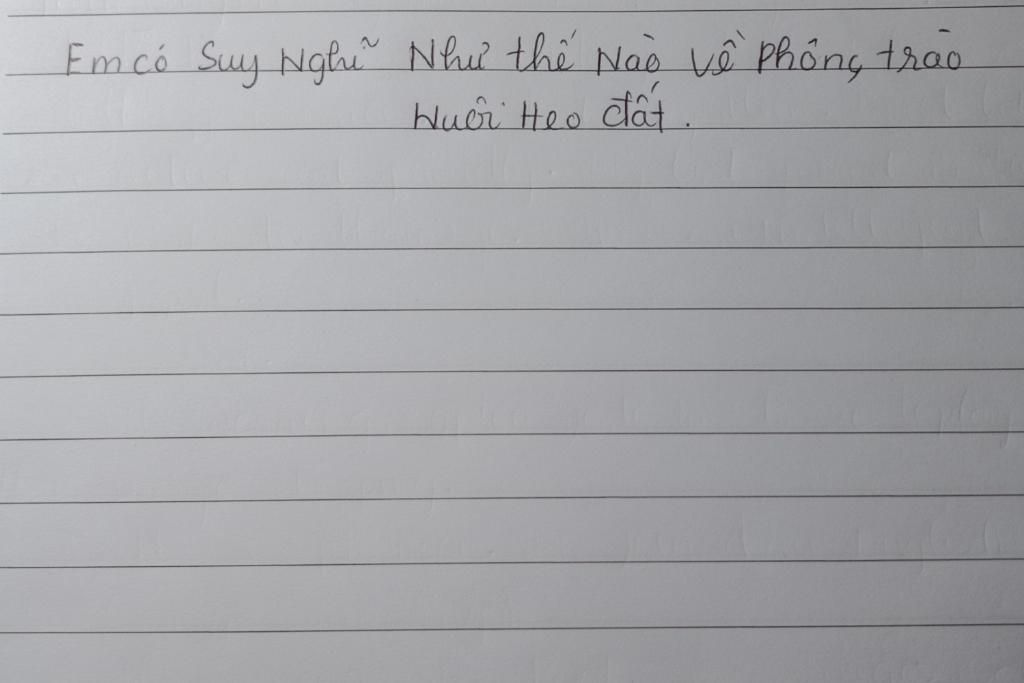 Em có Suy Nghĩ Như thế Nào về Phông trào
Nuôi Heo đất.